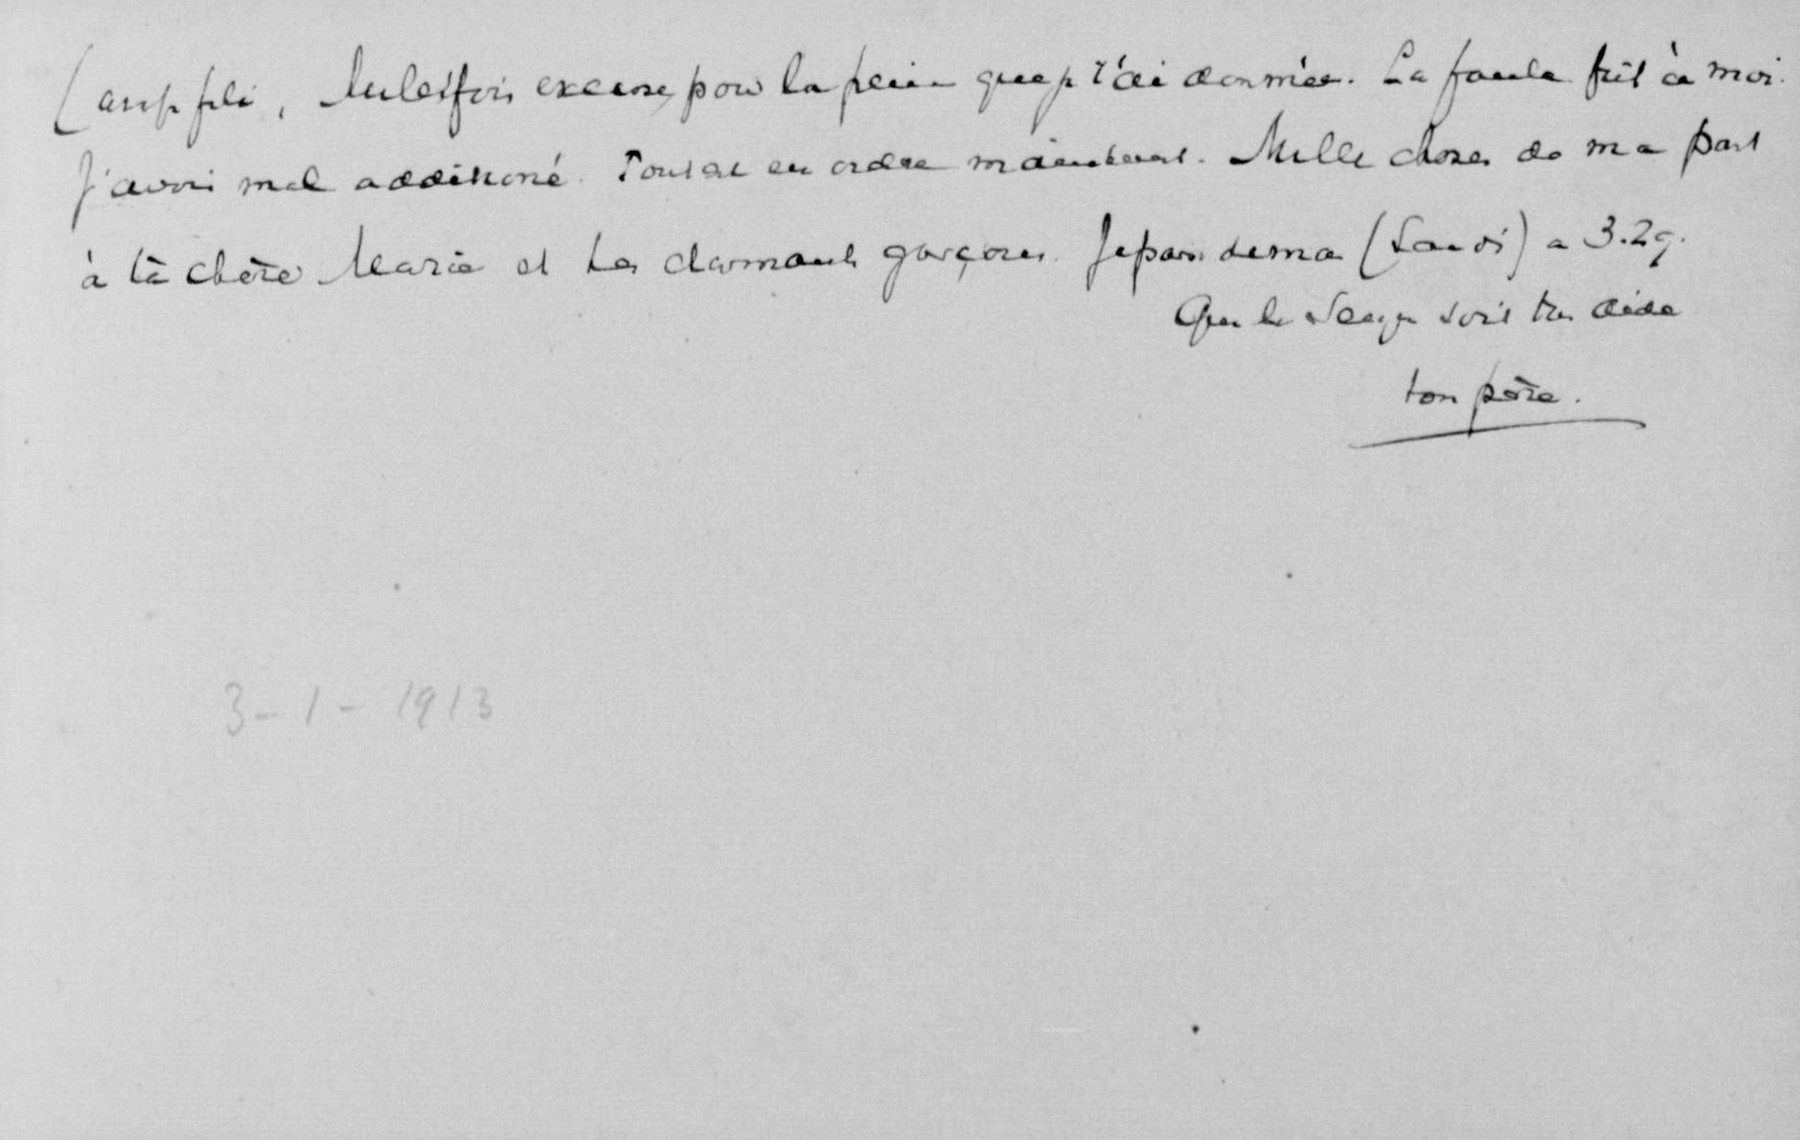 Cars fili, Mille fois excuse pour la peine que je t'ai donnée. La faute fut à moi.
J'avais mal additioné. Tout est en ordre maintenant. Mille choses de ma part
à ta chère Marie et tes charmants garçons. Je pars dema (Samdi) a 3.29.
Que le Seigr soit ton aide
ton père.
3-1-1913